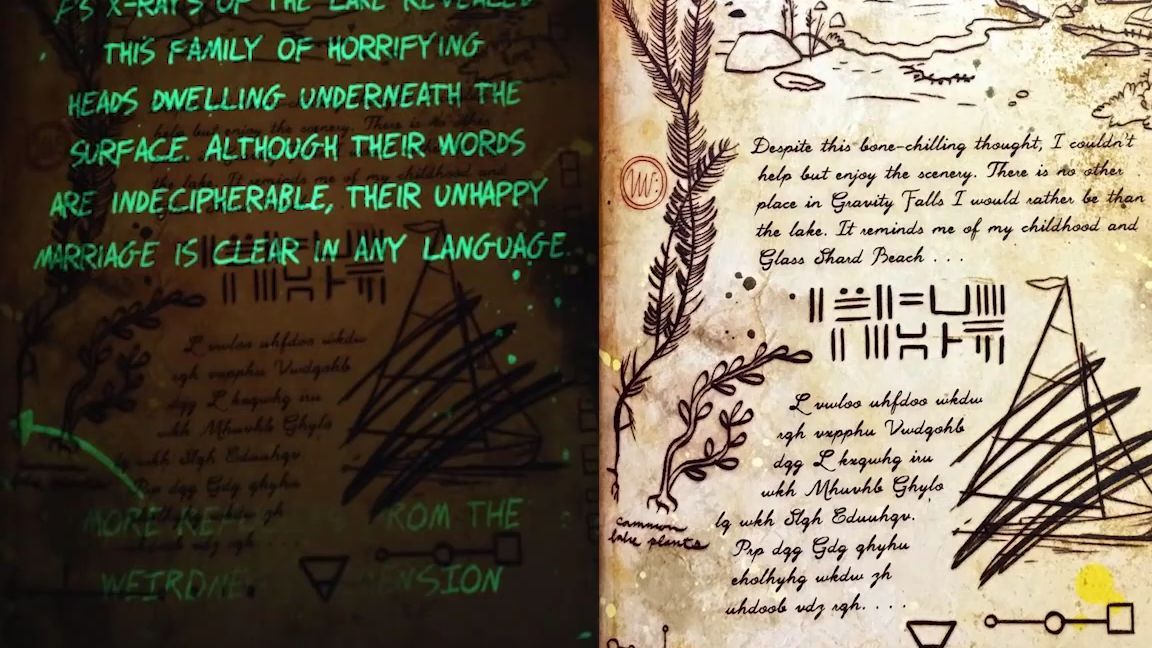 F'S X-RAYS OF THE LAKE REVEALED
THIS FAMILY OF HORRIFYING
HEADS DWELLING UNDERNEATH THE
SURFACE. ALTHOUGH THEIR WORDS
ARE INDECIPHERABLE, THEIR UNHAPPY
MARRIAGE IS CLEAR IN ANY LANGUAGE.
L vwloo uhfdoo wkdw
rqh vxpphu Vwdqohb
dqg L kxqwhg iru
wkh Mhuvhb Ghylo
lq wkh Slqh Eduuhqv
Prp dqg Gdg qhyhu
MORE THE
Despite this bone-chilling thought, I couldn't
help but enjoy the scenery. There is no other
place in Gravity Falls I would rather be than
the lake. It reminds me of my childhood and
Glass Shard Beach . . .
L vwloo uhfdoo wkdw
rqh vxpphu Vwdqohb
dqg L kxqwhg iru
wkh Mhuvhb Ghylo
lq wkh Slqh Eduuhqv.
Prp dqg Gdg qhyhu
eholhyhg wkdw zh
uhdoob vdz rqh. . . .
common
lake plants